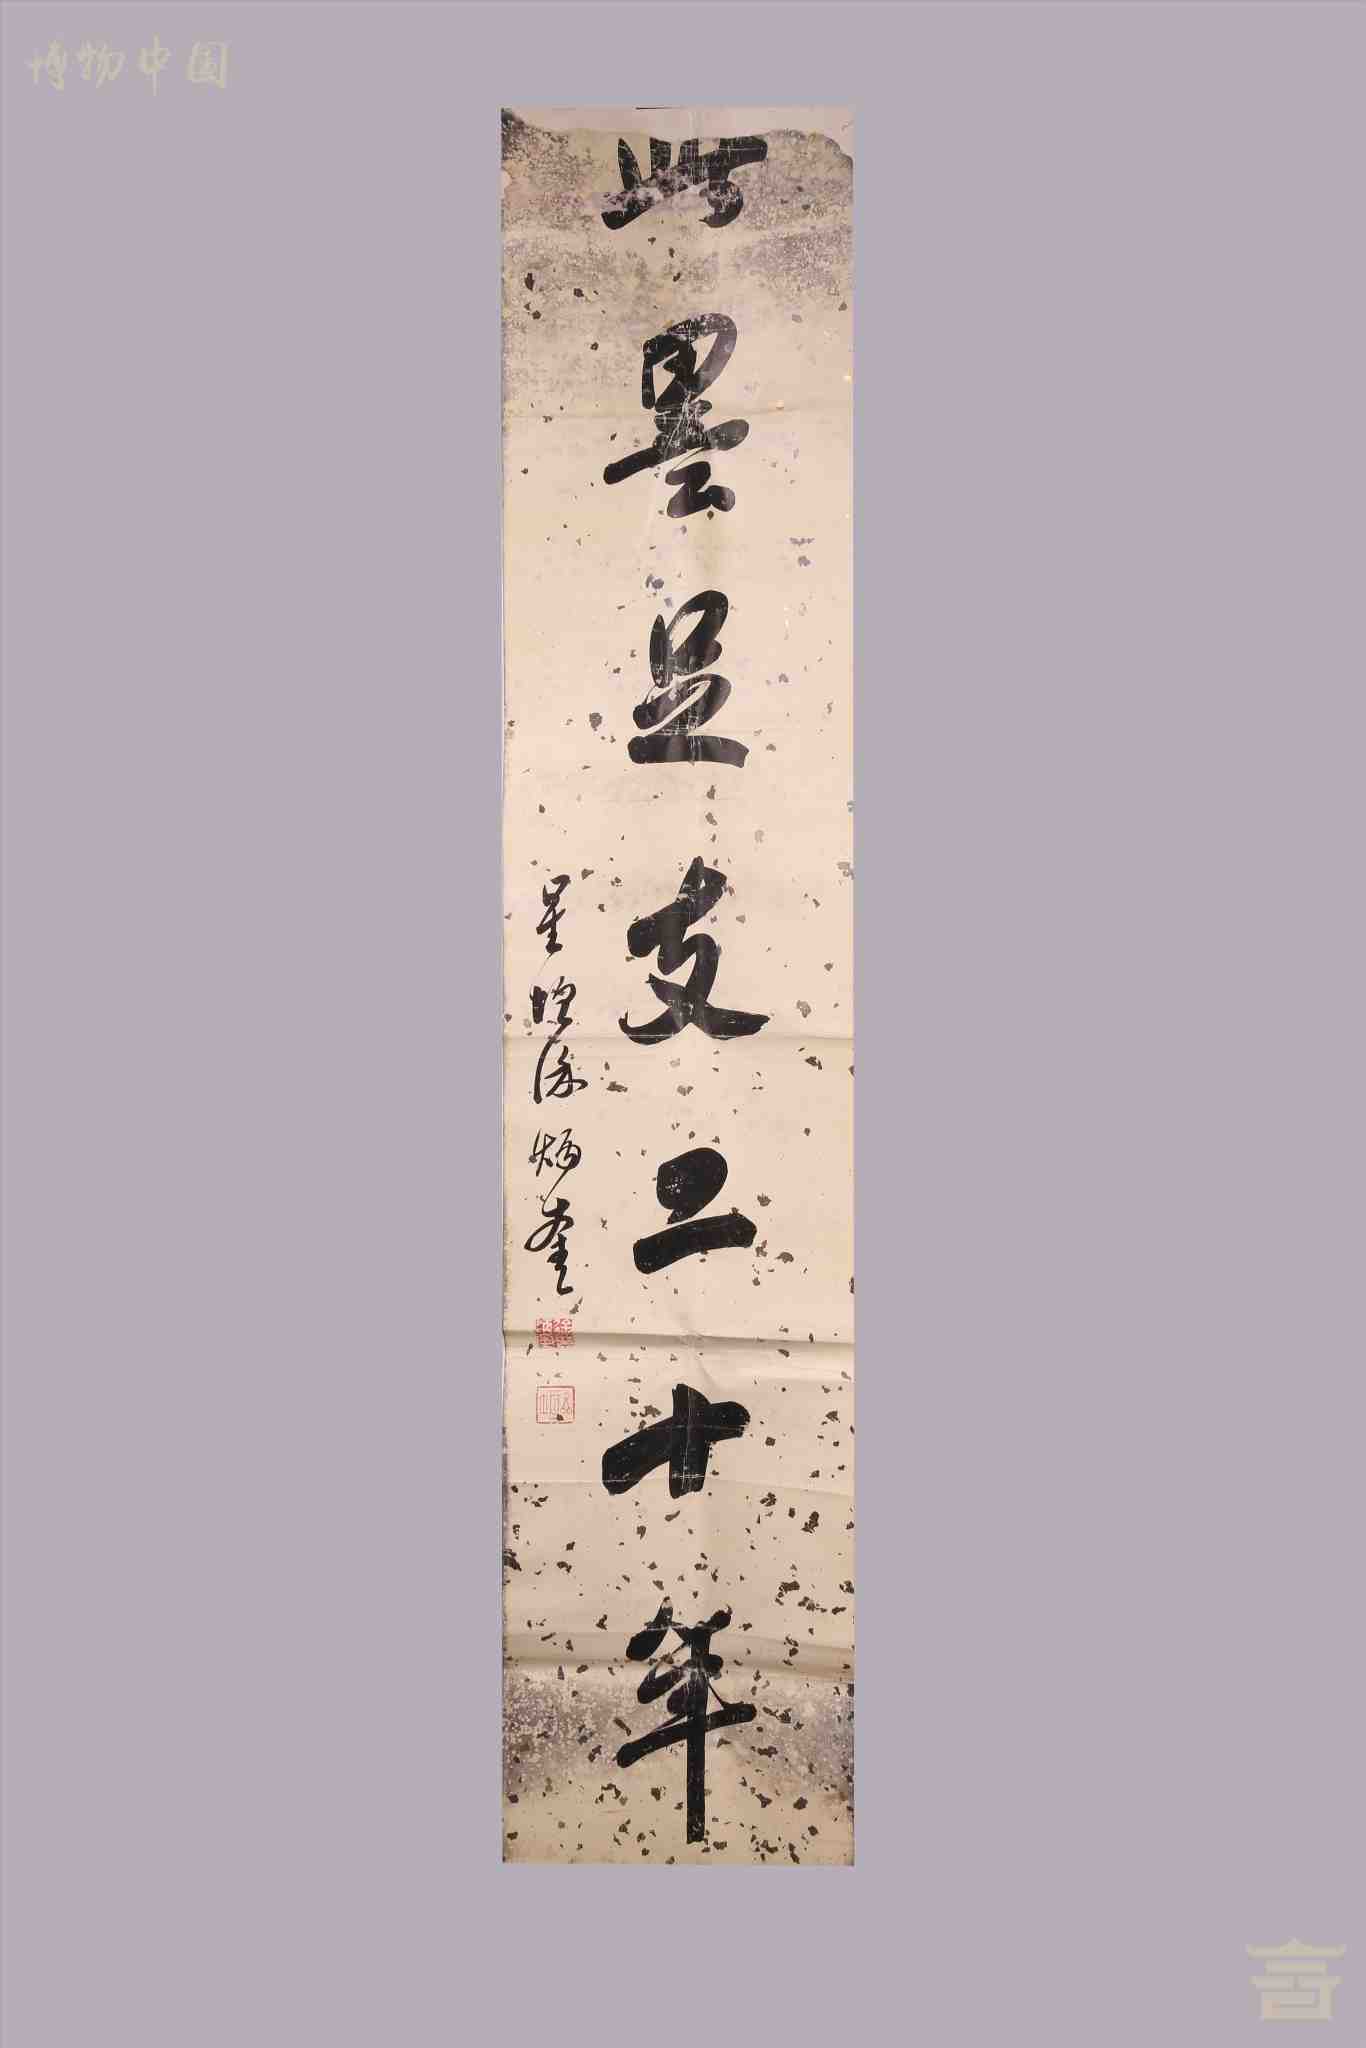 博物中国
此墨足支三十年
星 徐炳奎